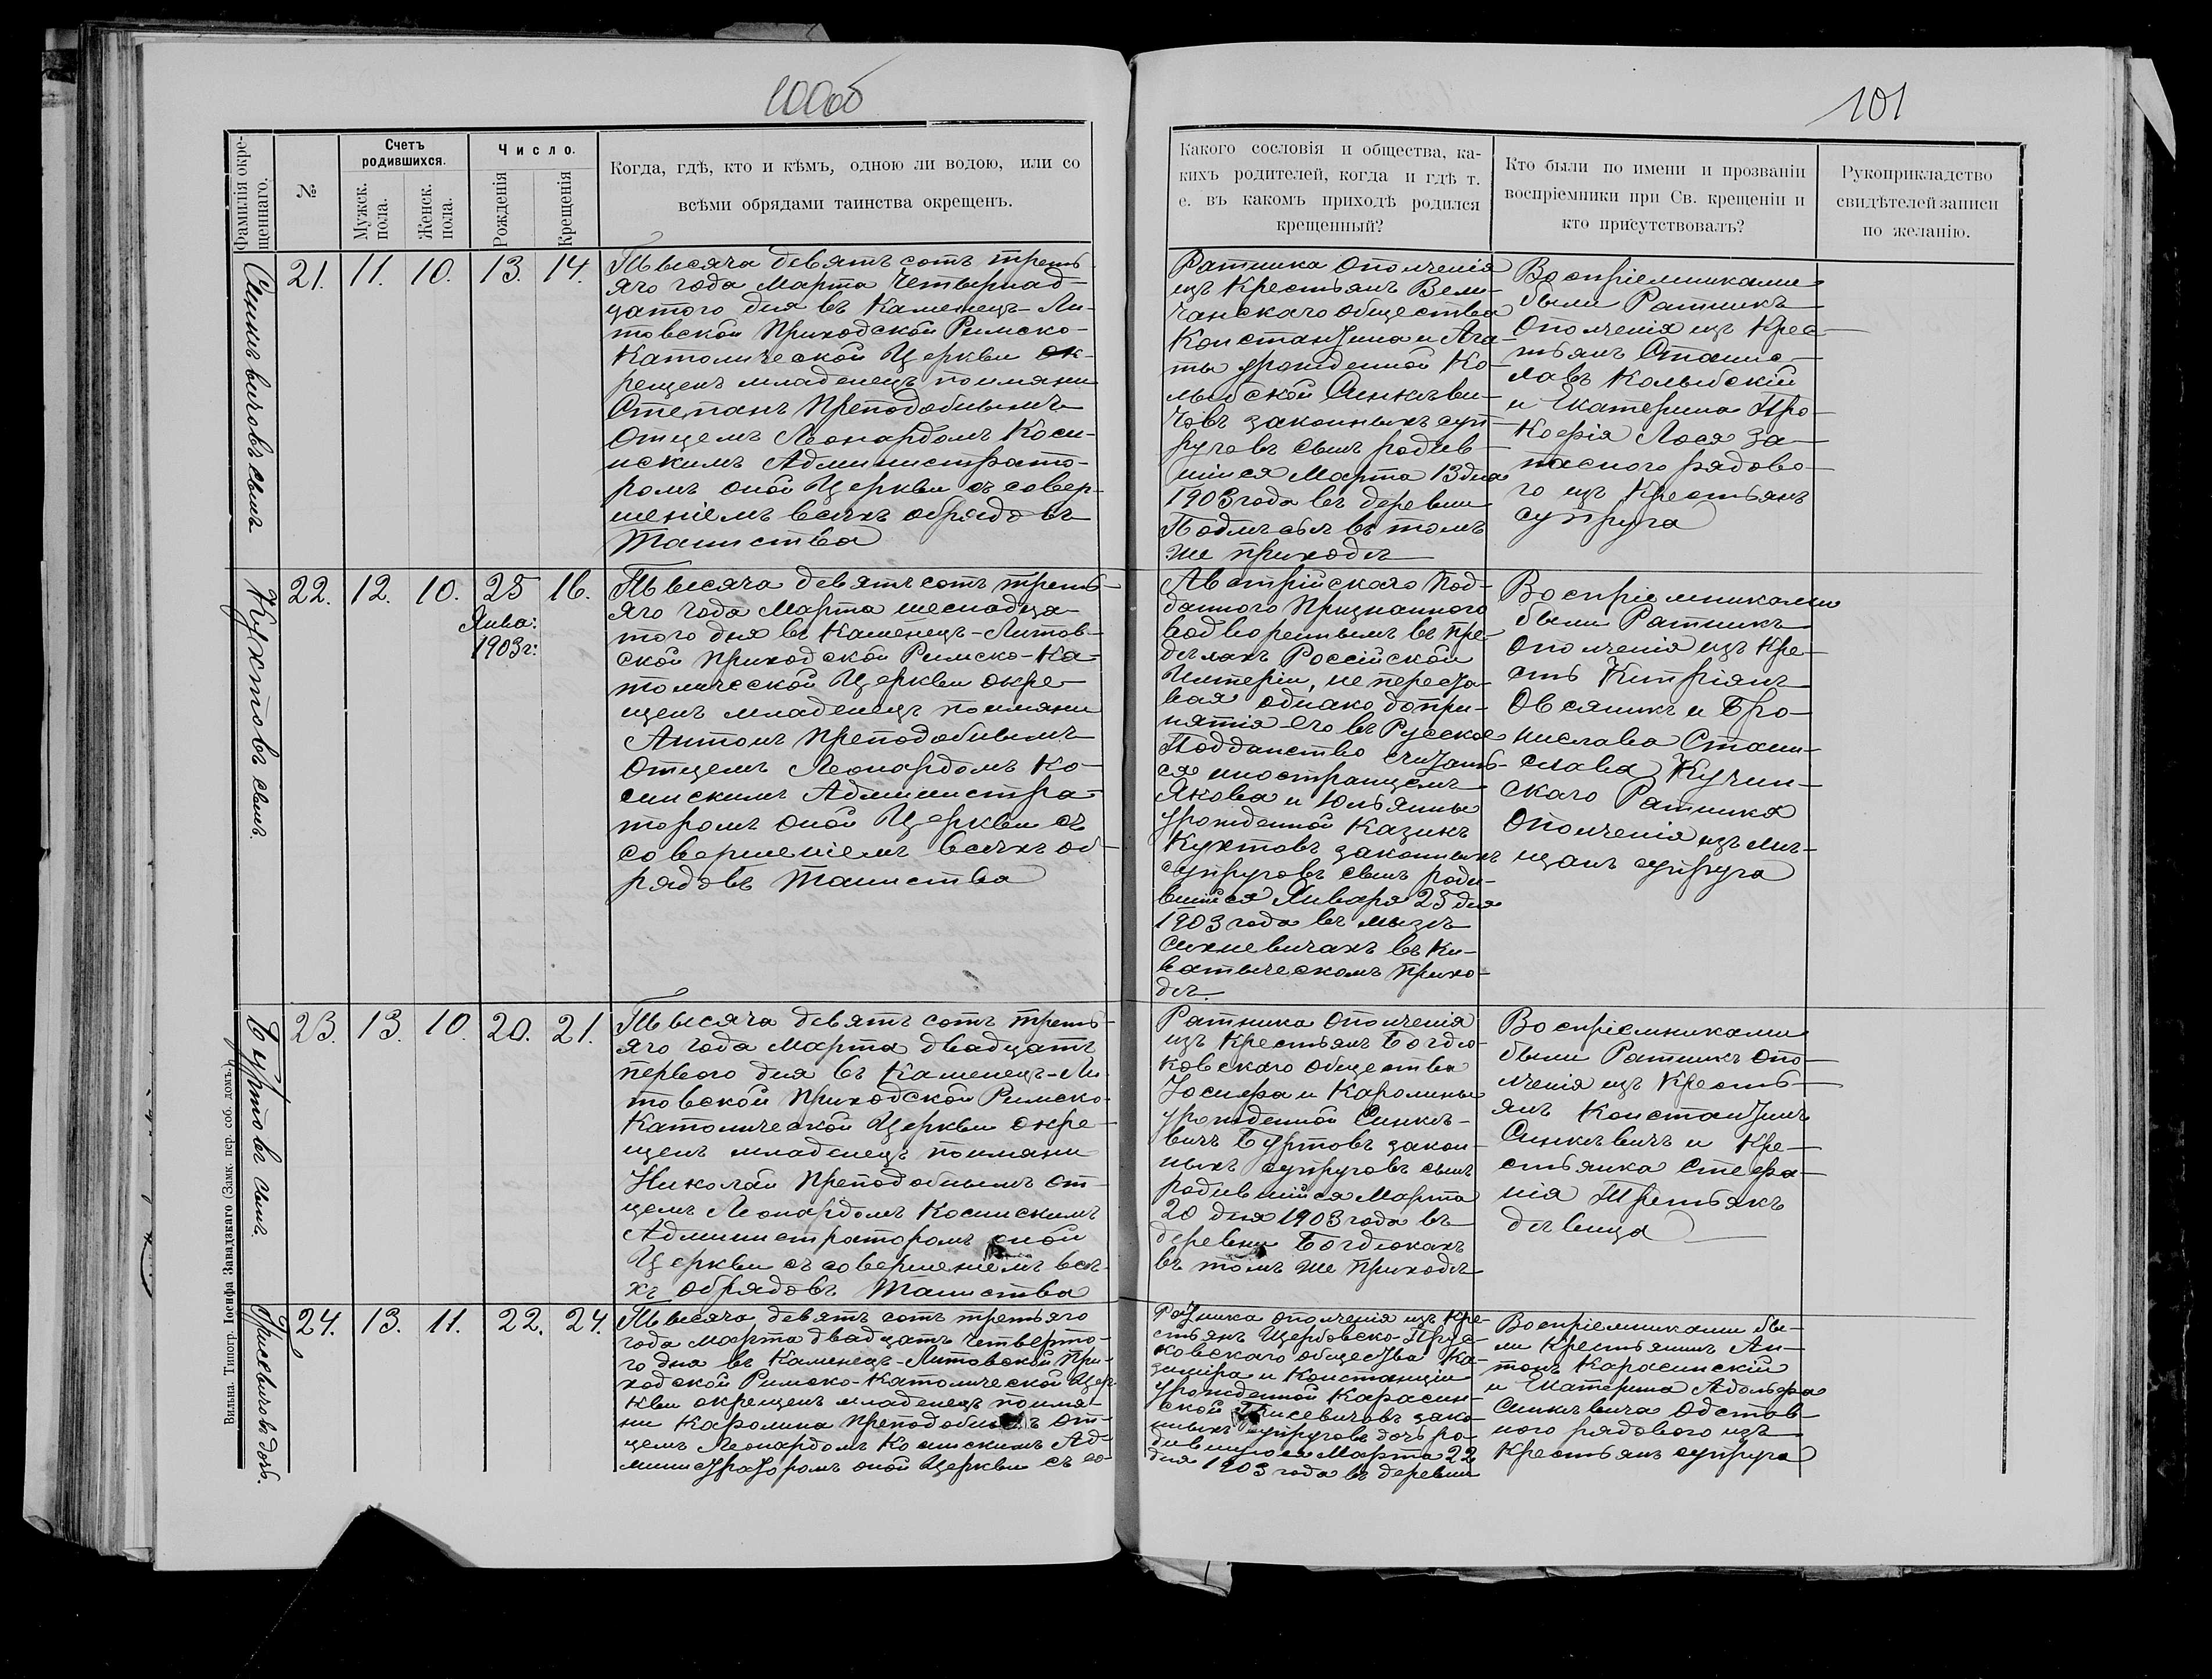 100об
101
Фамилія окре-
щеннаго.
№
Счетъ
родившихся.
Мужск.
пола.
Женск.
пола.
Число.
Рожденія
Крещенія
Когда, гдѣ, кто и кѣмъ, одною ли водою, или со
всѣми обрядами таинства окрещенъ.
Какого сословія и общества, ка-
кихъ родителей, когда и гдѣ т.
е. въ какомъ приходѣ родился
крещенный?
Кто были по имени и прозванію
воспріемники при Св. крещеніи и
кто присутствовалъ?
Рукоприкладство
свидѣтелей записи
по желанію.
Синкѣвичовъ сынъ
21. 11. 10. 13. 14.
Тысяча девятьсотъ треть
яго года Марта четырнад-
цатого дня въ Каменецъ-Ли-
товской Приходской Римско-
Католической Церкви ок-
рещенъ младенецъ поимяни
Степанъ Преподобнымъ
Отцемъ Леонардомъ Коси-
нскимъ Администрато-
ромъ оной Церкви съ совер-
шеніемъ всѣхъ обрядовъ
Таинства
Ратника ополченія
изъ Крестьянъ Вели-
чанскаго общества
Константина и Ага-
ты урожденной Ко-
лыбской Синкѣви-
човъ законныхъ суп-
руговъ сынъ родив
шійся Марта 13 дня
1903 года въ деревни
Подлѣсьѣ въ томъ
же приходѣ
Воспріемниками
были Ратникъ
Ополченія изъ Крес-
тьянъ Станис-
лавъ Колыбскій
и Екатерина Про-
кофія Лося за-
пасного рядово-
го изъ Крестьянъ
супруга
Кухтовъ сынъ.
22. 12. 10. 25 16.
Янва:
1903 г:
Тысяча девятьсотъ треть-
яго года Марта шеснадца-
того дня въ Каменецъ-Литов-
ской Приходской Римско-Ка-
толической Церкви окре-
щенъ младенецъ поимяни
Антонъ Преподобнымъ
Отцемъ Леонардомъ Ко-
синскимъ Администра-
торомъ оной Церкви съ
совершеніемъ всѣхъ об-
рядовъ Таинства
Австрійскаго Под-
данного Признанного
водвореннымъ въ пре-
дѣлахъ Россійской
Имперіи, не переста-
вая однако допри-
нятія его въ Русское
Подданство считать-
ся иностранцемъ
Якова и Юльянны
урожденной Казикъ
Кухтовъ законныхъ
супруговъ сынъ роди-
вшійся Января 25 дня
1903 года въ мызѣ
Сехневичахъ въ Ки-
ватыческомъ прихо-
дѣ.
Воспріемниками
были Ратникъ
ополченія изъ Кре-
сть Кипріянъ
Овсяникъ и Бро-
нислава Стани-
слава Кучин-
скаго Ратника
Ополченія изъ мѣ-
щанъ супруга
Буртовъ сынъ.
23. 13. 10. 20. 21.
Тысяча девятьсотъ треть-
яго года Марта двадцать
первого дня въ Каменецъ-Ли-
товской Приходской Римско-
Католической Церкви окре-
щенъ младенецъ поимяни
Николай Преподобнымъ От-
цемъ Леонардомъ Косинскимъ
Администраторомъ оной
Церкви съ совершеніемъ всѣ-
хъ обрядовъ Таинства
Ратника ополченія
изъ Крестьянъ Богдю-
ковскаго общества
Іосифа и Каролины
урожденной Синкѣ-
вичъ Буртовъ закон-
ныхъ супруговъ сынъ
родившійся Марта
20 дня 1903 года въ
деревни Богдюкахъ
въ томъ же приходѣ
Воспріемниками
были Ратникъ опо-
лченія изъ Кресть-
янъ Константинъ
Синкѣвичъ и Кре-
стьянка Стефа-
нія Третьякъ
дѣвица
Грисевичовъ дочь.
24. 13. 11. 22. 24.
Тысяча девятьсотъ третьяго
года Марта двадцать четверто-
го дна въ Каменецъ-Литовской При-
ходской Римско-Католической Цер-
кви окрещенъ младенецъ поимя-
ни Каролина Преподобнымъ От-
цемъ Леонардомъ Косинскимъ Ад-
министраторомъ оной Церкви съ со-
Ратника ополченія изъ Кре-
стьянъ Щербовско-Прус-
ковскаго общества Ка-
зиміра и Констанціи
урожденной Карасин-
ской Грисевичовъ зако-
нныхъ супруговъ дочь ро-
дившуюся Марта 22
дня 1903 года въ деревни
Воспріемниками бы-
ли Крестьянинъ Ан-
тонъ Карасинскій
и Екатерина Адольфа
Синкѣвича Отстав-
ного рядового изъ
Крестьянъ супруга
Вильна. Типогр. Іосифа Завадзкаго (Замк. пер. соб. домъ.)